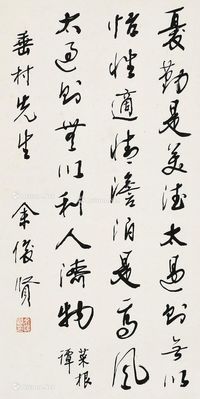 憂勤是美德太過則無以
怡性適情澹泊是高風
太過則無以利人濟物
菜根譚
垂村先生
余俊賢